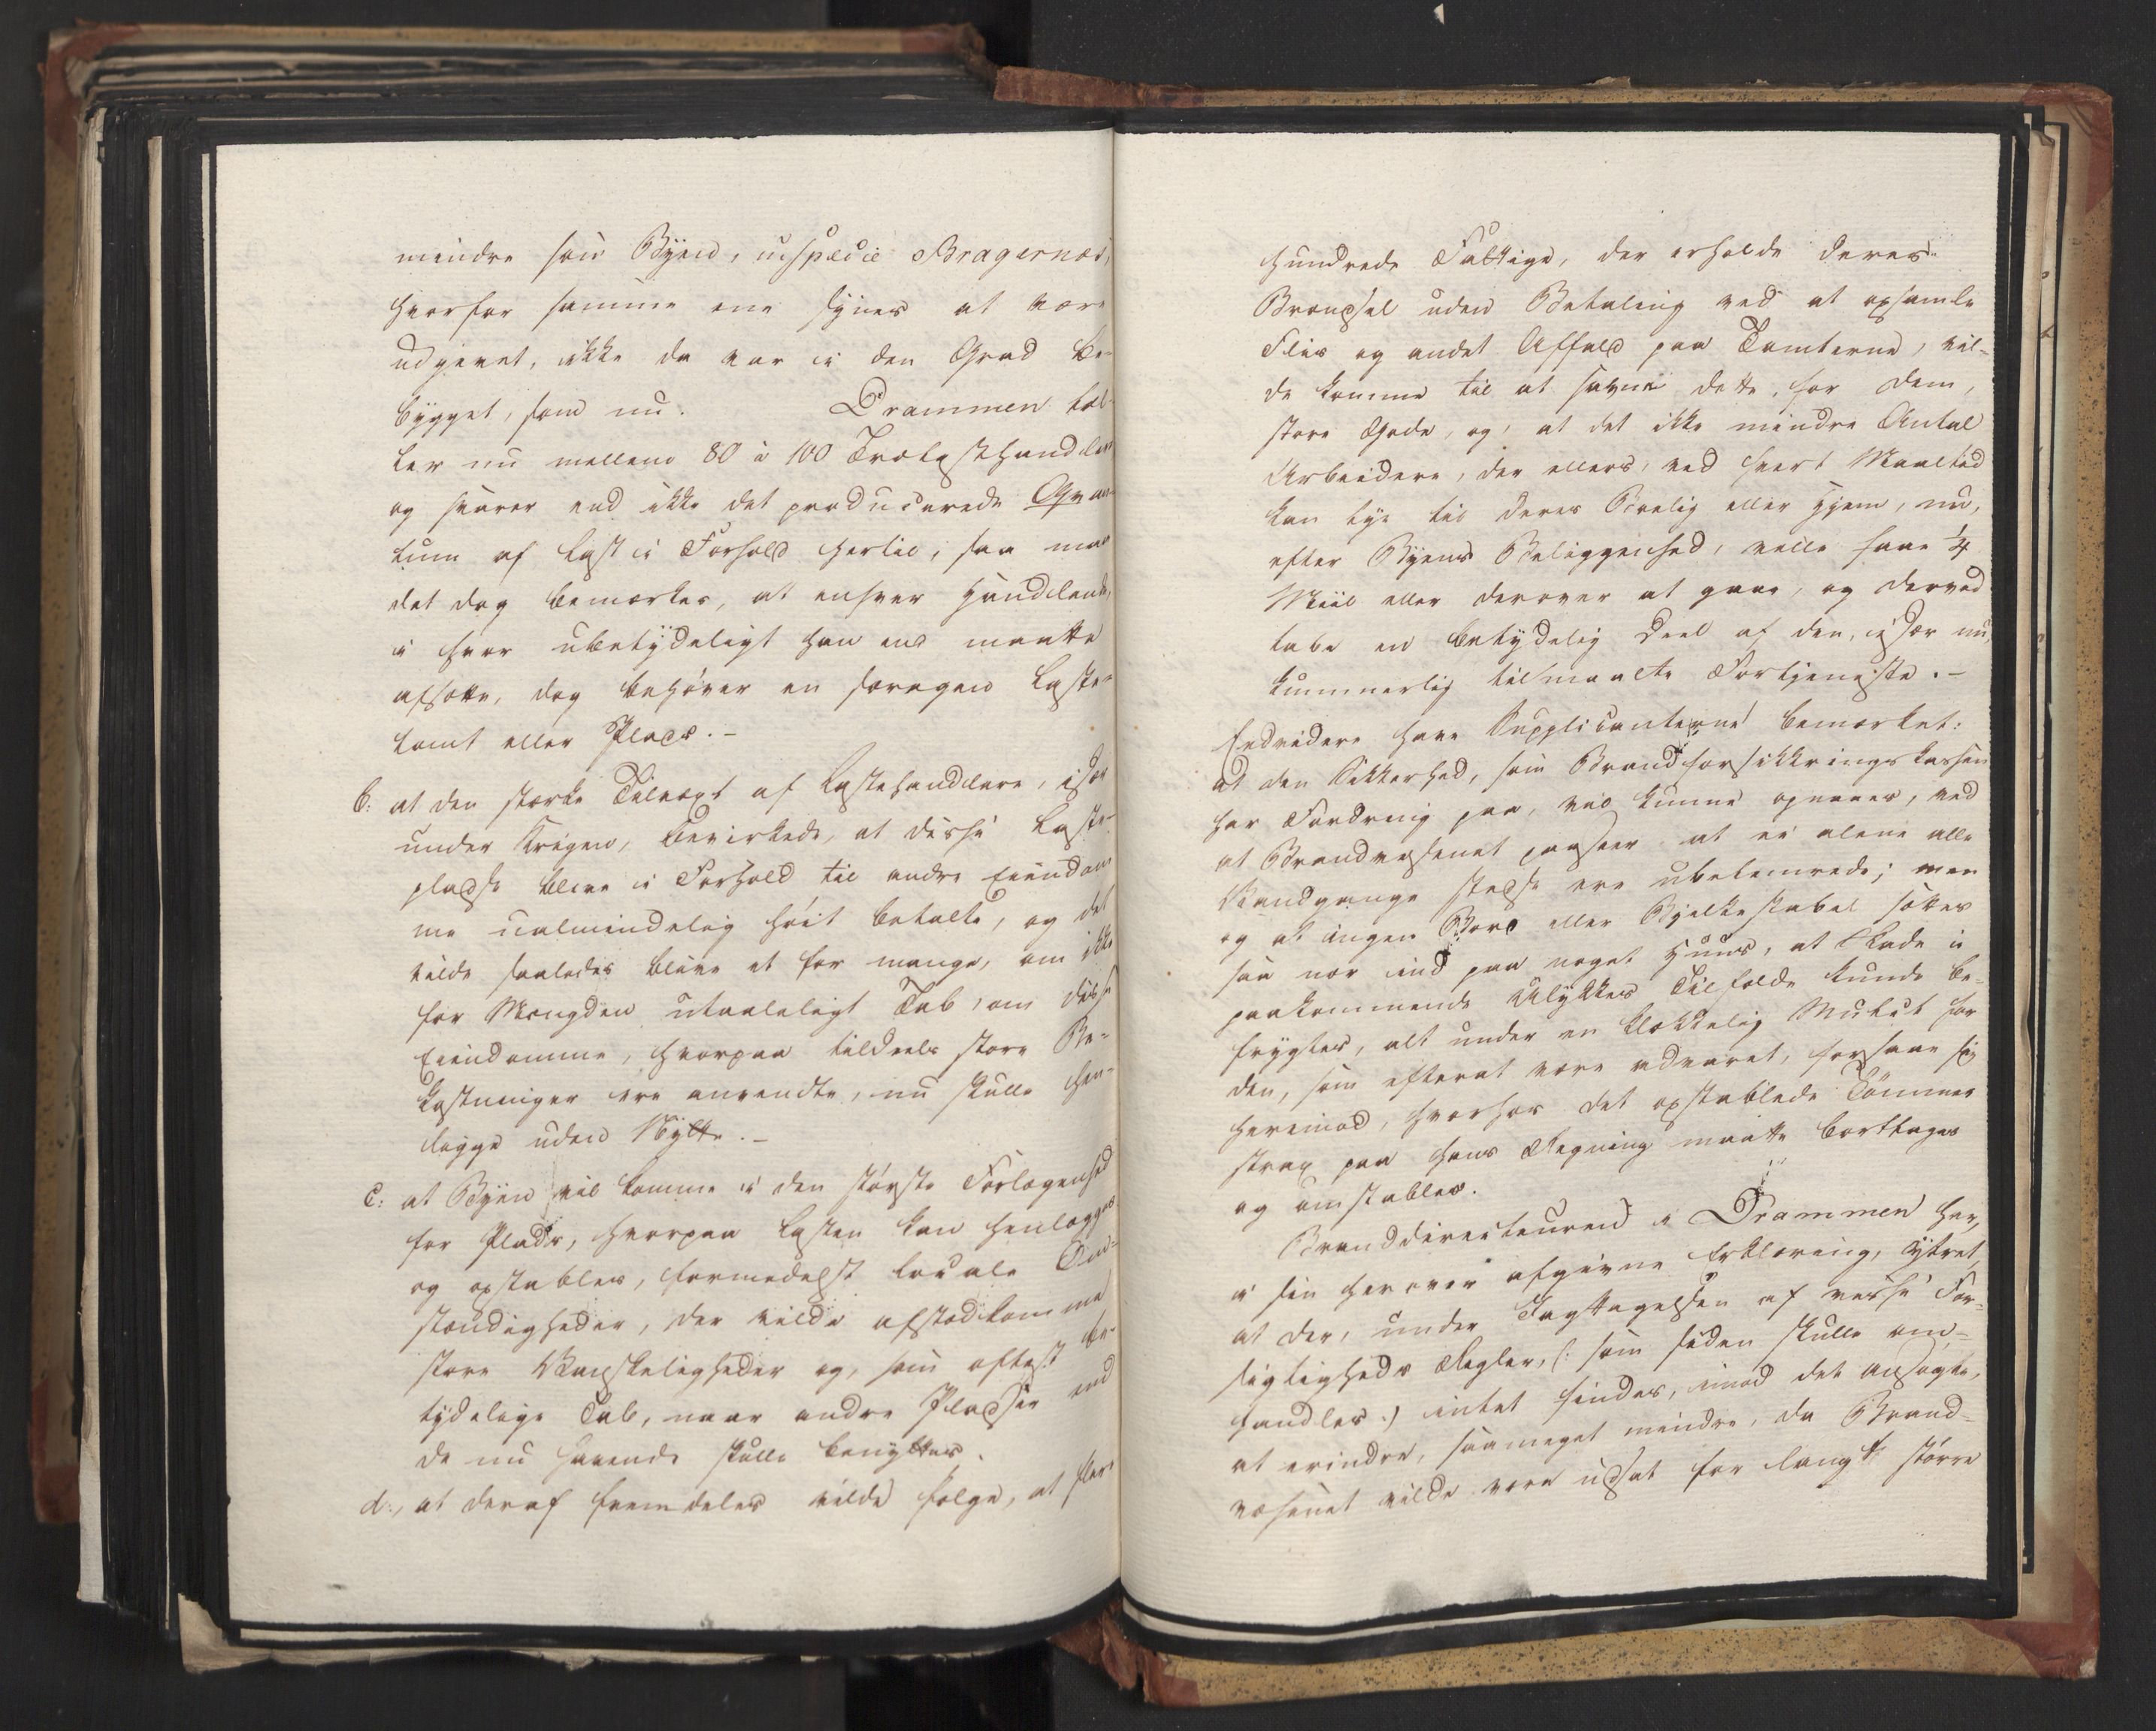 mindre som Byen, inspecie Bragernæs,
hvorfor samme ene synes at være
udgivet, ikke da var i den Grad be-
bygget, som nu. Drammen tæl-
ler nu mellem 80 à 100 Trælasthandlere
og svarer end ikke det producerede Qvan-
tum af Last i Forhold hertil, saa maa
det dog bemærkes, at enhver Handlende,
i hvor ubetydeligt han end maatte
afsætte, dog behøver en særegen Laste-
tomt eller Plads.-
b: at den stærke Tilvæxt af Lastehandlere, især
under Krigen, bevirkede, at disse Laste-
pladse bleve i Forhold til andre Eiendom-
me ualmindelig høit betalte, og det
vilde saaledes blive et for mange, om ikke
for Mængden utaaleligt Tab, om disse
Eiendomme, hvorpaa tildeels store Be-
kostninger ere anvendte, nu skulle hen-
ligge uden Nytte.-
c: at Byen vil komme i den største Forlegenhed
for Plads, hvorpaa Lasten kan henlægges
og opstables, formedelst locale Om-
stændigheder, der vilde afstedkomme
store Vanskeligheder og, som oftest be-
tydelige Tab, naar andre Pladser end
de nu havende skulle benyttes.
d:, at deraf fremdeles vilde følge, at flere
hundrede Fattige, der erholde deres
Brændsel uden Betaling ved at opsamle
Flis og andet Affald paa Tomterne, vil-
de komme til at savne dette, for dem,
store Gode, og, at det ikke mindre Antal
Arbeidere, der ellers, ved hvert Maaltid
kan tye til deres Bolig eller Hjem, nu,
efter Byens Beliggenhed, ville faae 1/4
Miil eller derover at gaae, og derved
tabe en betydelig Deel af den, især nu,
kummerlig tilmaalte Fortjeneste.-
Endvidere have Supplicanterne bemærket:
at den Sikkerhed, som Brandforsikkringskassen
har Fordring paa, vil kunne opnaaes, ved
at Brandvæsenet paaseer at ei alene alle
Vandgange stedse ere ubelemrede; men
og at ingen Bord eller Bjelkestabel sættes
saa nær ind paa noget Huus, at Skade i
paakommende Ulykkes Tilfælde kunde be-
frygtes, alt under en klækkelig Mulct for
den, som efterat være advaret, forsaae sig
herimod, hvorhos det opstablede Tømmer
strax paa hans Regning maatte borttages
og omstables.
Branddirecteuren i Drammen har,
i sin herover afgivne Erklæring, yttret,
at der, under Iagttagelsen af visse For-
sigtigheds Regler, (: som siden skulle om-
handles :) intet findes, imod det ansøgte,
at erindre, saameget mindre, da Brand-
væsenet vilde være udsat for langt større